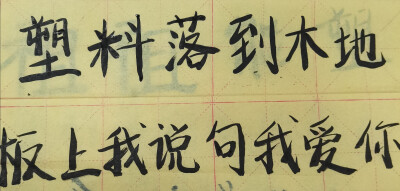 塑料落到木地
板上我说句我爱你